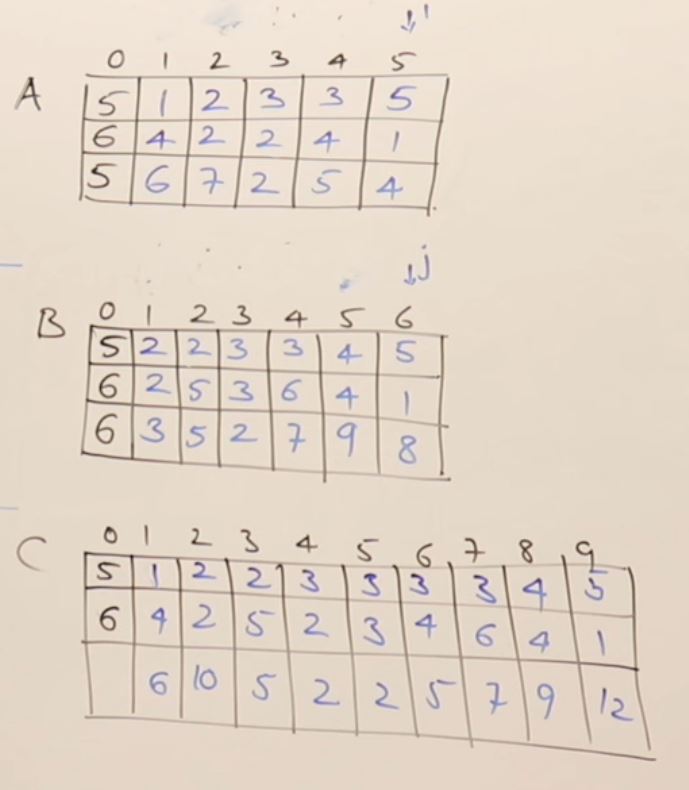 ↓i
0 1 2 3 4 5
A
5 1 2 3 3 5
6 4 2 2 4 1
5 6 7 2 5 4
↓j
0 1 2 3 4 5 6
B
5 2 2 3 3 4 5
6 2 5 3 6 4 1
6 3 5 2 7 9 8
0 1 2 3 4 5 6 7 8 9
C
5 1 2 2 3 3 3 3 4 5
6 4 2 5 2 3 4 6 4 1
6 10 5 2 2 5 7 9 12